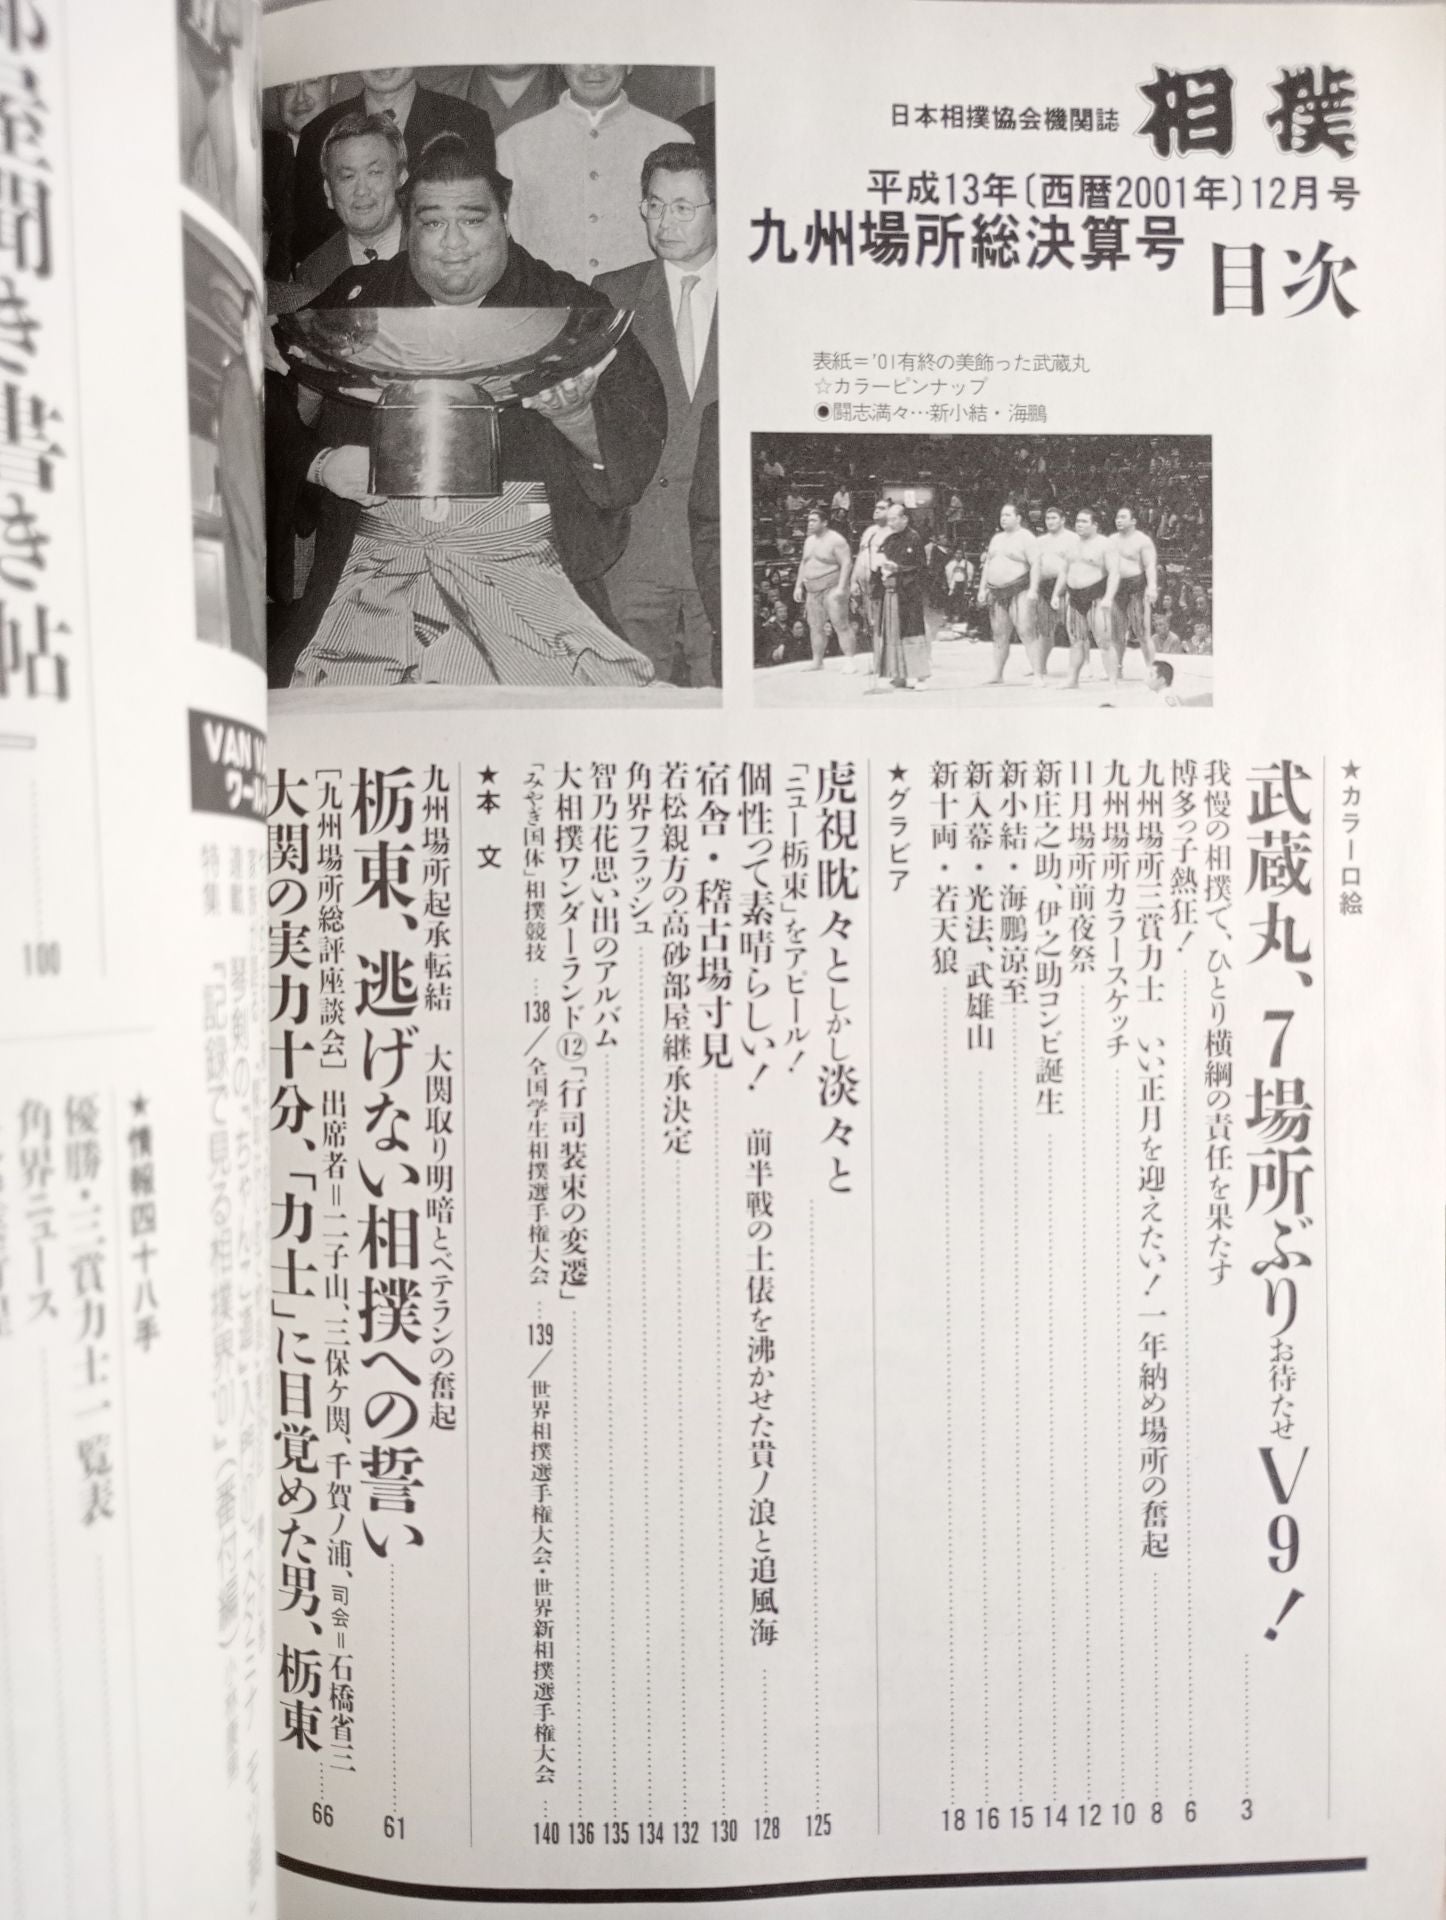 相撲
日本相撲協会機関誌
平成13年〔西暦2001年〕12月号
九州場所総決算号
目次
表紙＝'01有終の美飾った武蔵丸
☆カラーピンナップ
◉闘志満々…新小結・海鵬
★カラー口絵
武蔵丸、7場所ぶりお待たせV9！
我慢の相撲で、ひとり横綱の責任を果たす……3
博多っ子熱狂！……6
九州場所三賞力士 いい正月を迎えたい！一年納め場所の奮起……8
九州場所カラースケッチ……10
11月場所前夜祭……12
新庄之助、伊之助コンビ誕生……14
新小結・海鵬涼至……15
新入幕・光法、武雄山……16
新十両・若天狼……18
★グラビア
虎視眈々としかし淡々と……125
「ニュー栃東」をアピール！
個性って素晴らしい！ 前半戦の土俵を沸かせた貴ノ浪と追風海……128
宿舎・稽古場寸見……130
若松親方の高砂部屋継承決定……132
角界フラッシュ……134
智乃花思い出のアルバム……135
大相撲ワンダーランド⑫「行司装束の変遷」……136
「みやぎ国体」相撲競技…138／全国学生相撲選手権大会…139／世界相撲選手権大会・世界新相撲選手権大会…140
★本 文
九州場所起承転結 大関取り明暗とベテランの奮起
栃東、逃げない相撲への誓い……61
［九州場所総評座談会］出席者＝二子山、三保ケ関、千賀ノ浦、司会＝石橋省三
大関の実力十分、「力士」に目覚めた男、栃東……66
特集 「記録で見る相撲界'01」〈番付編〉
VAN
ワール
部屋聞き書き帖』
100
★情報四十八手
優勝・三賞力士一覧表
角界ニュース